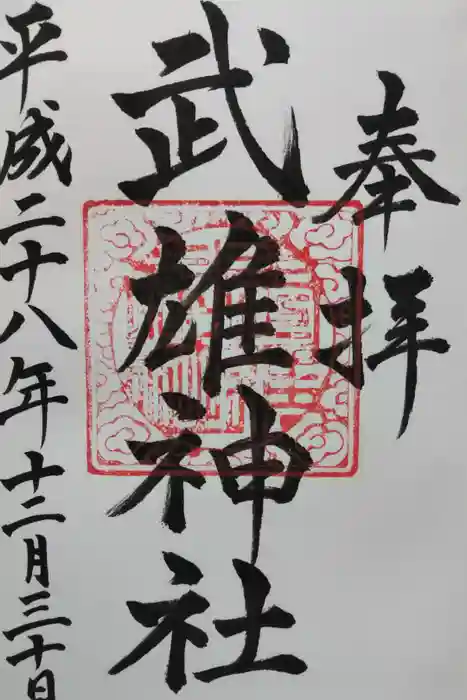 奉拝
武雄神社
平成二十八年十二月三十日